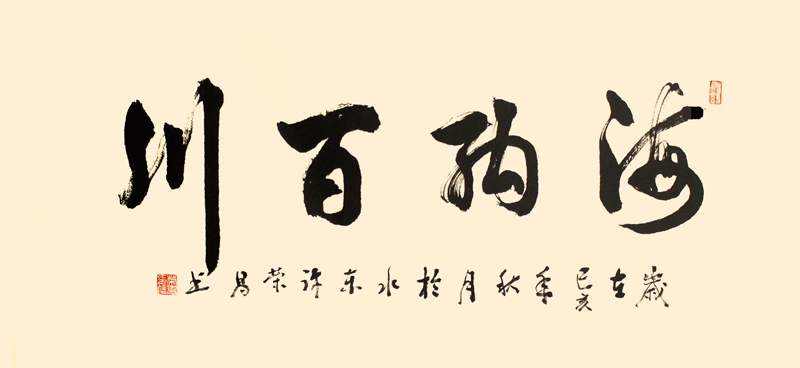 海纳百川
岁在己亥年秋月於水东许荣昌书